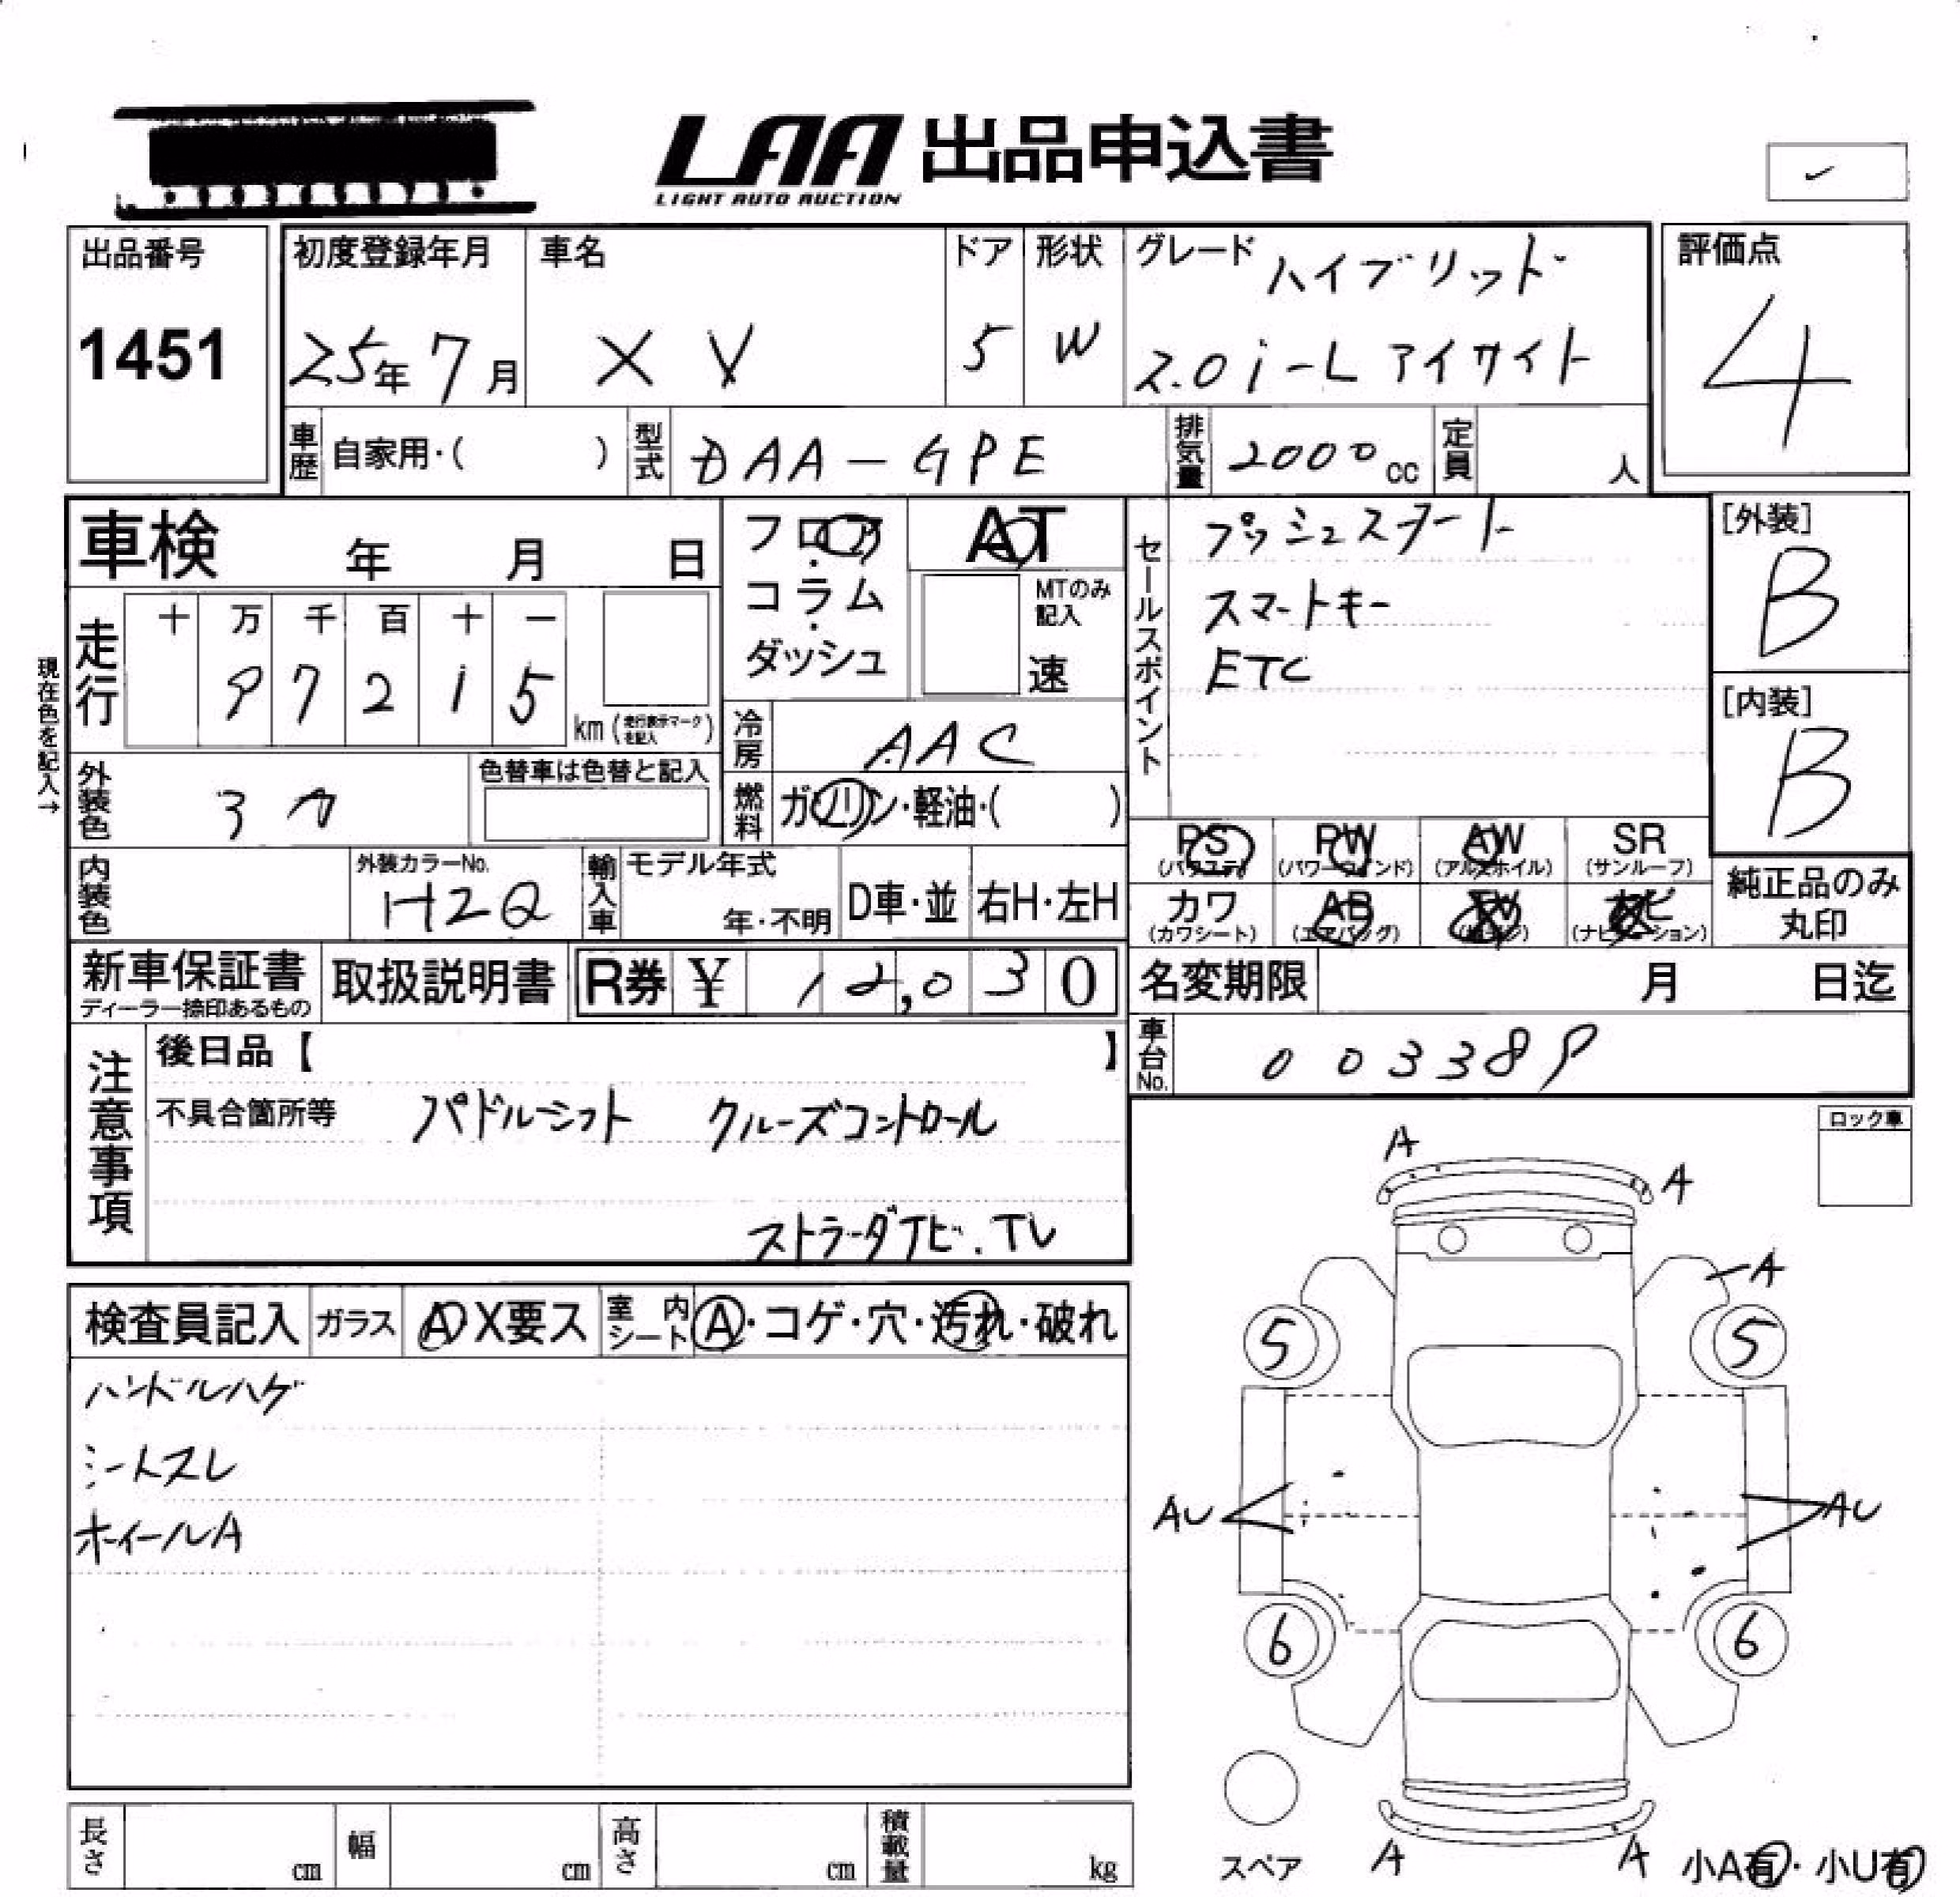 LAA 出品申込書
LIGHT AUTO AUCTION
出品番号
1451
初度登録年月
25年7月
車名
XV
ドア
5
形状
W
グレード ハイブリッド
2.0i-L アイサイト
評価点
4
車歴 自家用・( )
型式 DAA-GPE
排気量 2000cc
定員 人
車検 年 月 日
フロア・コラム・ダッシュ
AT
MTのみ記入
速
走行
十 万 千 百 十 一
9 7 2 1 5
km (走行表示マークを記入)
現在色を記入→
冷房 AAC
燃料 ガソリン・軽油・( )
外装色
色替車は色替と記入
内装色
外装カラーNo.
H2Q
輸入車
モデル年式
年・不明
D車・並
右H・左H
セールスポイント
プッシュスタート
スマートキー
ETC
[外装]
B
[内装]
B
PS
(パワステ)
PW
(パワーウインド)
AW
(アルミホイル)
SR
(サンルーフ)
カワ
(カワシート)
AB
(エアバッグ)
TV
ナビ
(ナビゲーション)
純正品のみ
丸印
新車保証書
ディーラー捺印あるもの
取扱説明書
R券 ¥ 12,030
名変期限 月 日迄
車台No. 003389
注意事項
後日品【 】
不具合箇所等 パドルシフト クルーズコントロール
ストラーダナビ.TV
検査員記入
ガラス A X要ス
室内シート A・コゲ・穴・汚れ・破れ
ハンドルハゲ
シートスレ
ホイールA
ロック車
A
A
A
5
5
AU
AU
6
6
スペア
A
A
小A有・小U有
長さ cm
幅 cm
高さ cm
積載量 kg